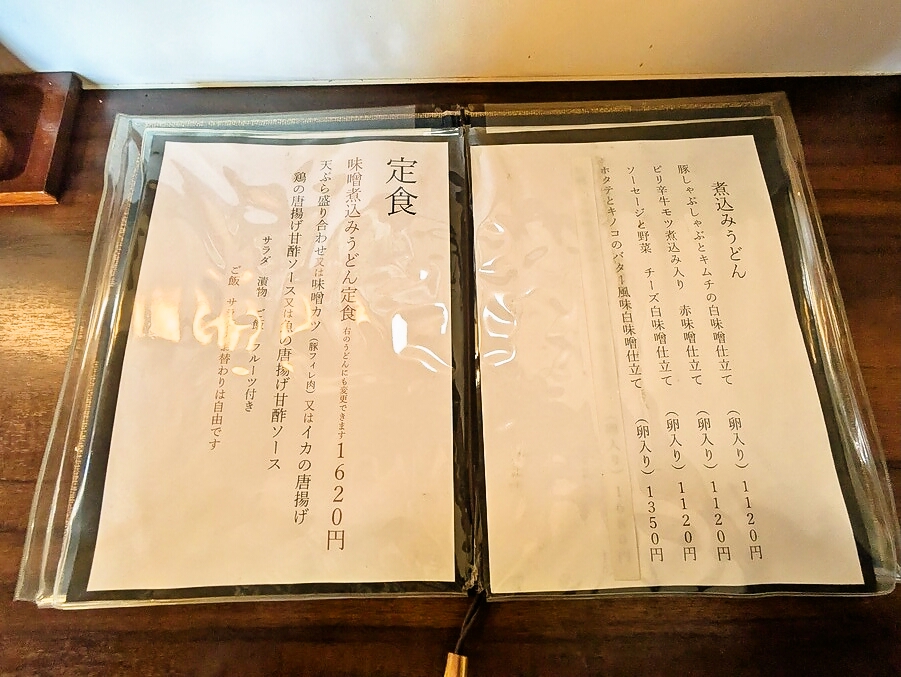 煮込みうどん
豚しゃぶしゃぶとキムチの白味噌仕立て （卵入り） 1120円
ピリ辛牛モツ煮込み入り 赤味噌仕立て （卵入り） 1120円
ソーセージと野菜 チーズ白味噌仕立て （卵入り） 1120円
ホタテとキノコのバター風味白味噌仕立て （卵入り） 1350円
定食
味噌煮込みうどん定食 右のうどんにも変更できます 1620円
天ぷら盛り合わせ又は味噌カツ（豚フィレ肉）又はイカの唐揚げ
鶏の唐揚げ甘酢ソース又は の唐揚げ甘酢ソース
サラダ 漬物 ご飯 フルーツ付き
ご飯 サ 替わりは自由です